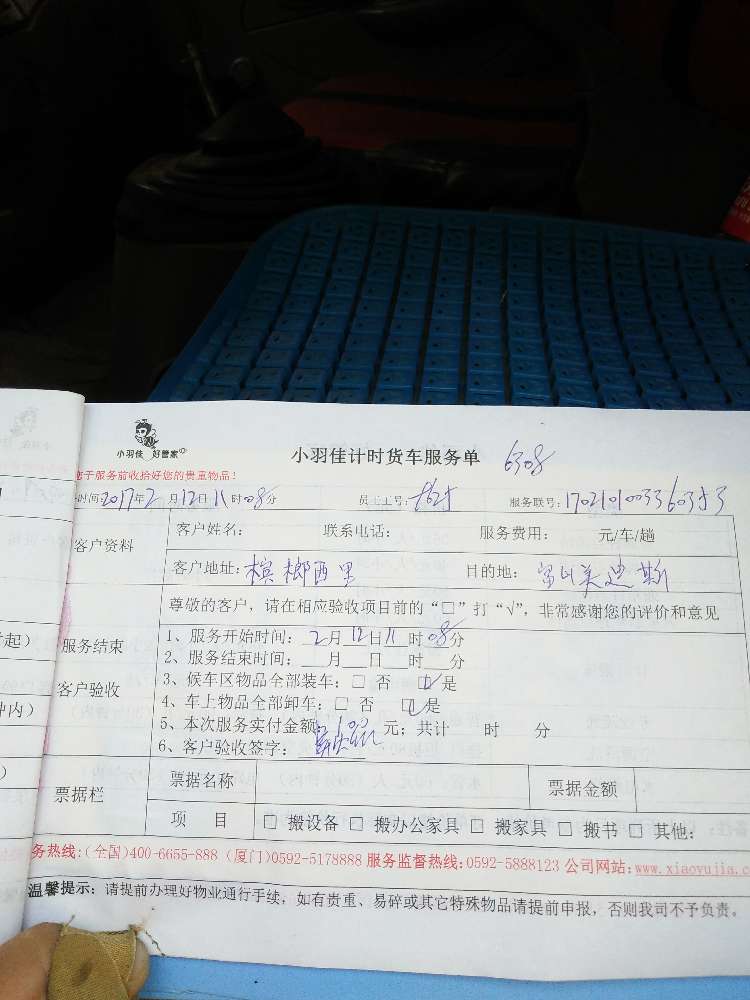 小羽佳 好管家
小羽佳计时货车服务单 6308
于服务前收拾好您的贵重物品!
时间:2017年2月12日11时08分 员工工号: 服务联号:
客户资料
客户姓名: 联系电话: 服务费用: 元/车/趟
客户地址:槟榔西里 目的地:富山美迪斯
服务结束
客户验收
尊敬的客户,请在相应验收项目前的“□”打“√”,非常感谢您的评价和意见
1、服务开始时间:2月12日11时08分
2、服务结束时间: 月 日 时 分
3、候车区物品全部装车:□ 否 ☑是
4、车上物品全部卸车:□ 否 ☑是
5、本次服务实付金额:100元;共计 时 分
6、客户验收签字:
票据栏
票据名称 票据金额
项 目 □ 搬设备 □ 搬办公家具 □ 搬家具 □ 搬书 □ 其他:
务热线:(全国)400-6655-888 (厦门)0592-5178888 服务监督热线:0592-5888123 公司网站:www.xiaoyujia.c
温馨提示:请提前办理好物业通行手续,如有贵重、易碎或其它特殊物品请提前申报,否则我司不予负责。